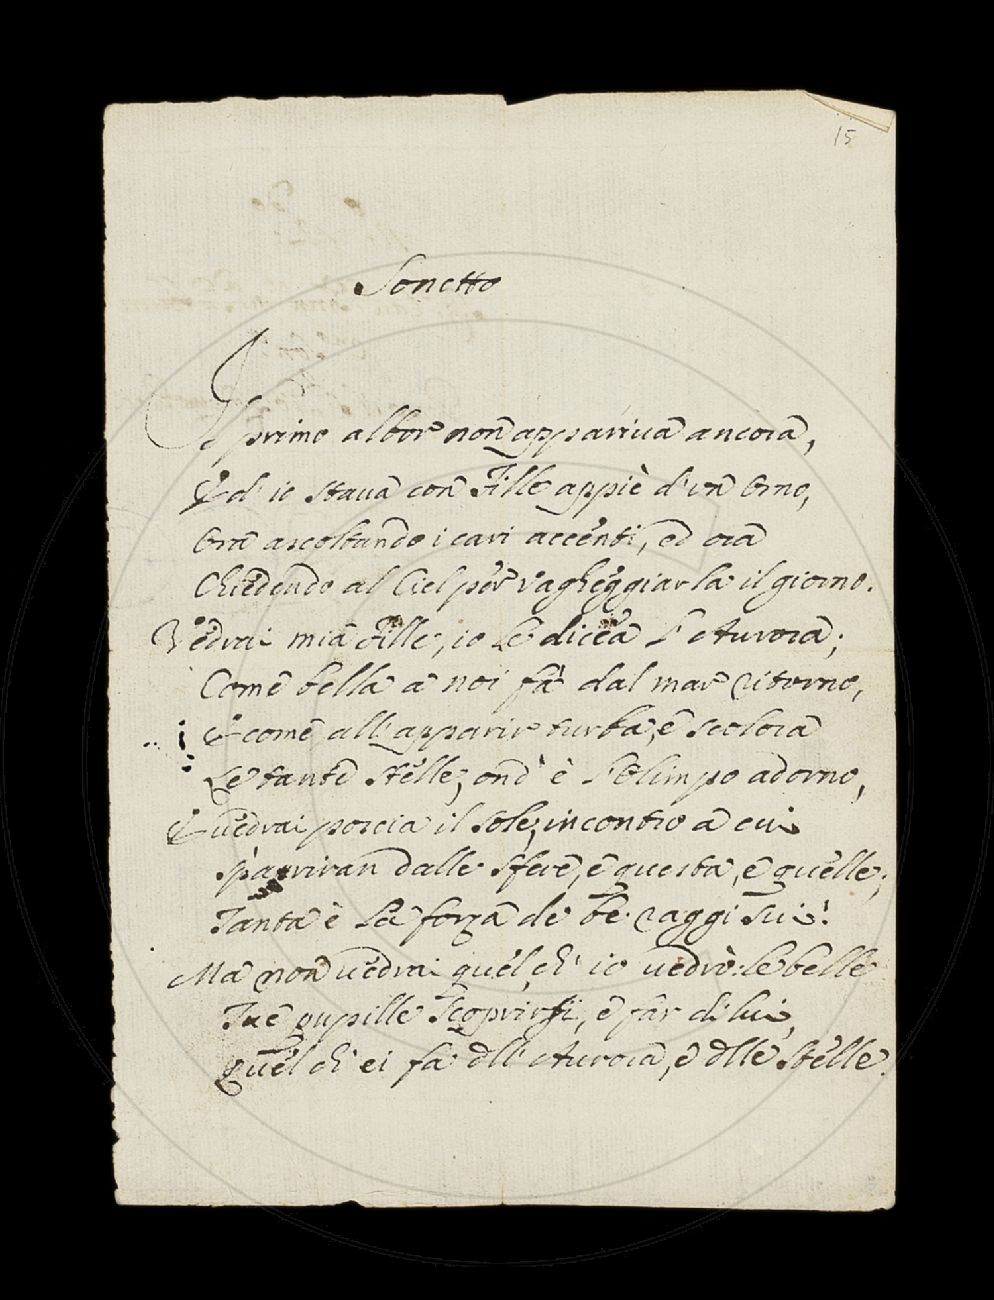 15
Sonetto
Il primo albor non appariva ancora,
Ed io stava con Fille appiè d'un Orno,
Ora ascoltando i cari accenti, ed ora
Chiedendo al Ciel per vagheggiarla il giorno.
Vedrai mia Fille, io le dicea l'Aurora,
Come bella a noi fa dal mar ritorno,
E come all'apparir turba, e scolora
Le tante stelle, ond' è l'Olimpo adorno,
E vedrai poscia il sole, incontro a cui
Sparriran dalle sfere, e questa, e quelle;
Tanta è la forza de' be' raggi sui!
Ma non vedrai quel, ch' io vedrò: le belle
Tue pupille scoprirsi, e far di lui,
Quel ch' ei fa dell' Aurora, e delle stelle.